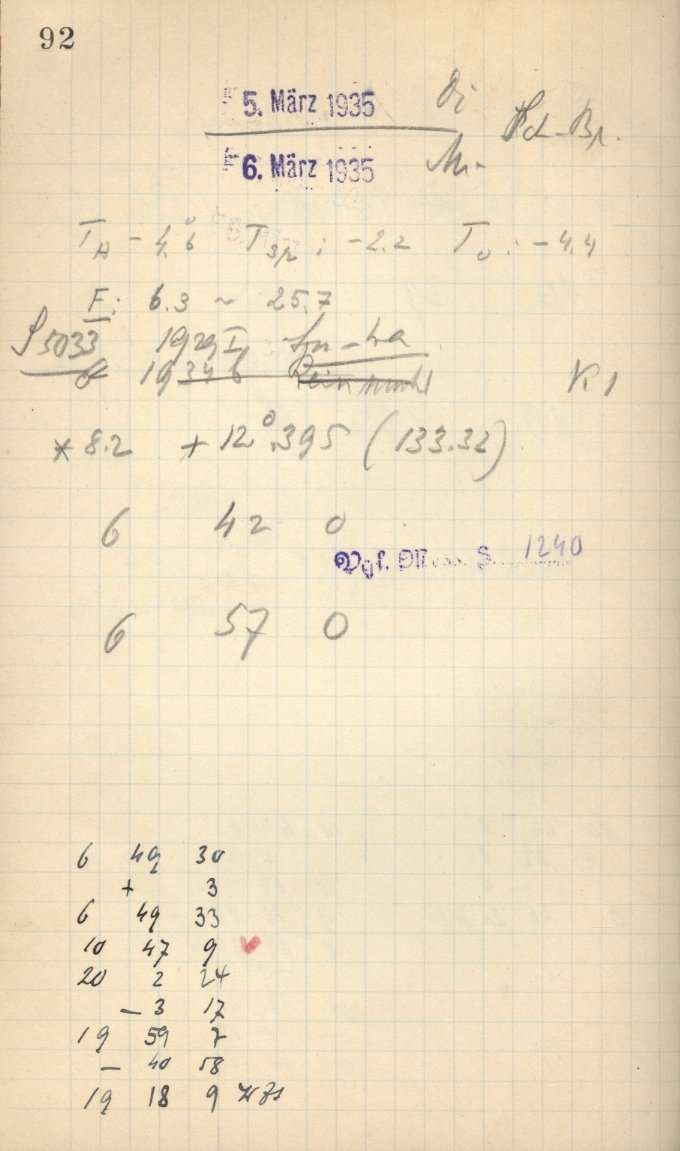 92
5. März 1935 Di
6. März 1935 Mi-
T_A - 4.°6 T_Sp : -2.2 T_U : -4.4
F: 6.3 ~ 25.7
S 5033 1929 I
1934 b K 1
* 8.2 + 12°.395 (133.32)
6 42 0
Vgl. Mess. S. 1240
6 57 0
6 49 30
+ 3
6 49 33
10 47 9
20 2 24
- 3 17
19 59 7
- 40 58
19 18 9